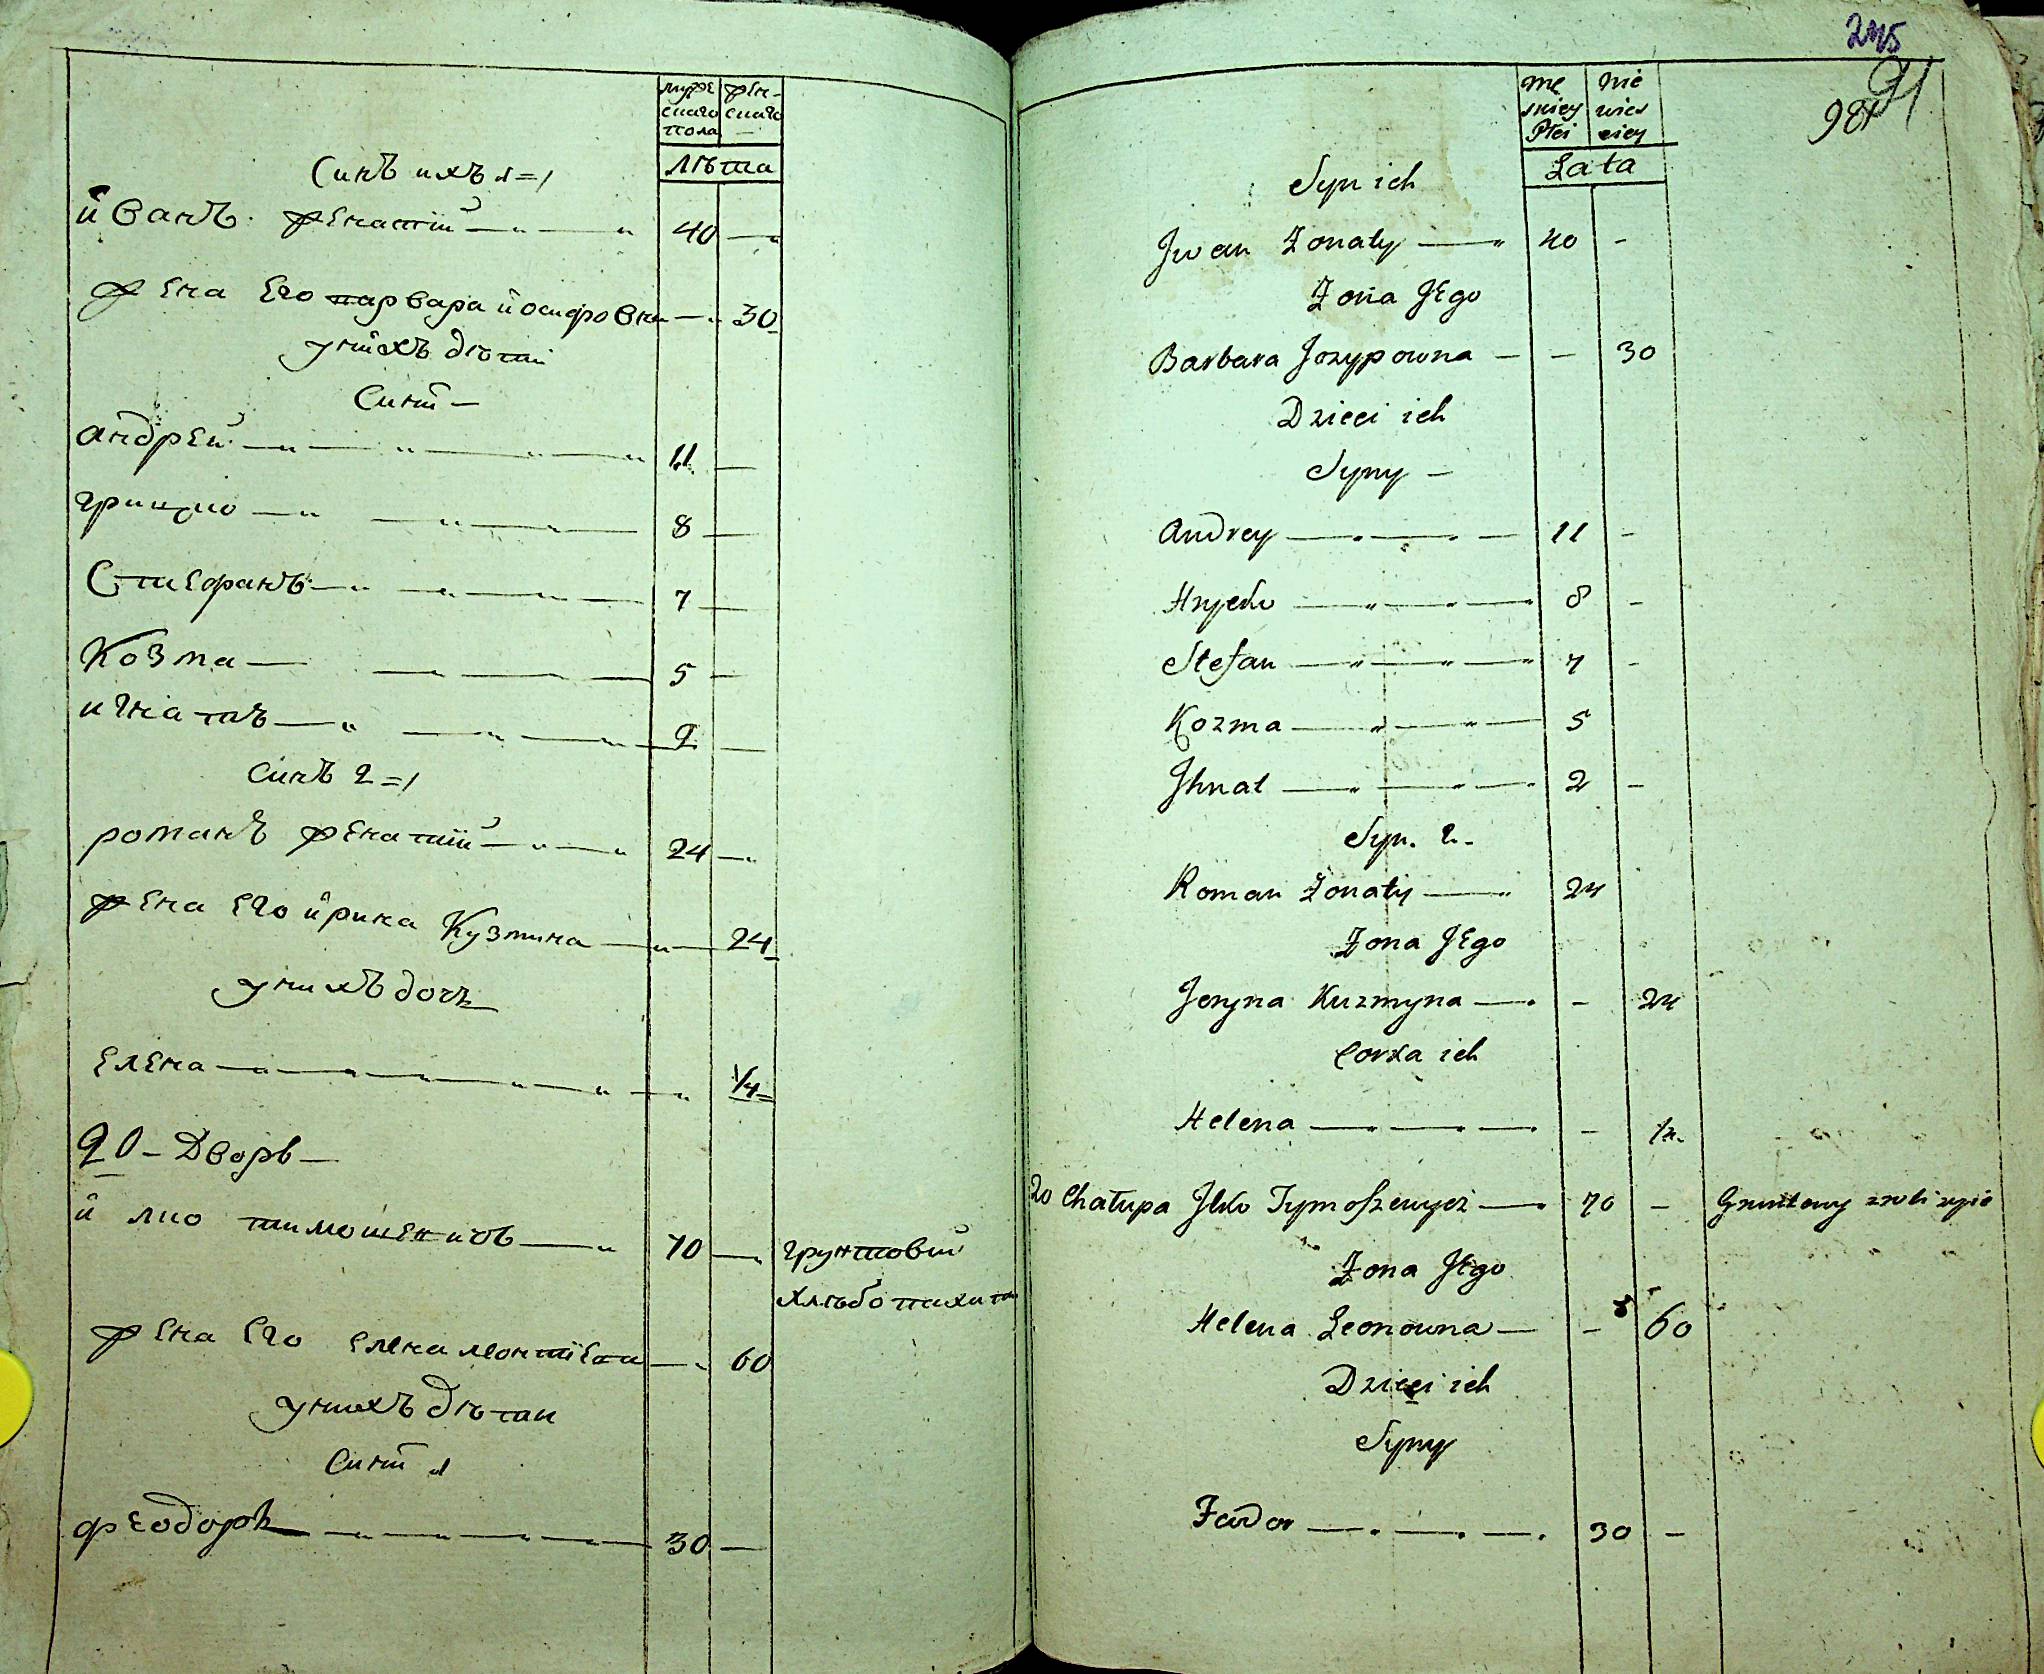 муже
скаго
пола
жен-
скаго
Лѣта
Синъ ихъ 1=й
иванъ женатий 40
жена Его варвара иосифовна 30
у нихъ дѣти
Сини
андрей 11
грицко 8
Стефанъ 7
Козма 5
игнатъ 2
Синъ 2=й
романъ женатий 24
жена Его ирина Кузмина 24
у нихъ дочь
Елена 1/4
20 - Дворъ
илко тимошевичъ 70 грунтовий
хлѣбопахат
жена Его Елена леонтіева 60
у нихъ дѣти
Сини 1
феодоръ 30
245
91
981
Mę
skiey
Płci
Nie
wies
ciey
Lata
Syn ich
Jwan Żonaty 40 -
Żona Jego
Barbara Jozypowna - 30
Dzieci ich
Syny -
Andrey 11 -
Hryćko 8 -
Stefan 7 -
Kozma 5
Jhnat 2 -
Syn. 2.
Roman Żonaty 24
Żona Jego
Jeryna Kuzmyna - 24
Corka ich
Helena - 1/4.
20 Chałupa Jlko Tymoszewycz 70 - Gruntowy
Żona Jego
Helena Leonowna - 60
Dzieci ich
Syny
Fedor 30 -